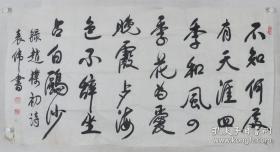 不知何處
有天涯四
季和風四
季花為愛
晚霞多海
色不辭坐
占白鷗沙
錄趙樸初詩
袁偉書